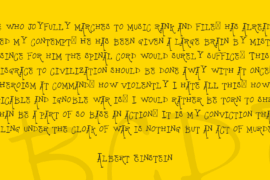 E WHO JOYFULLY MARCHES TO MUSIC RANK AND FILE HAS ALREAD
ED MY CONTEMPT HE HAS BEEN GIVEN A LARGE BRAIN BY MIST
SINCE FOR HIM THE SPINAL CORD WOULD SURELY SUFFICE THIS
ISGRACE TO CIVILIZATION SHOULD BE DONE AWAY WITH AT ONCE
HEROISM AT COMMAND HOW VIOLENTLY I HATE ALL THIS HOW
ICABLE AND IGNOBLE WAR IS I WOULD RATHER BE TORN TO SH
HAN BE A PART OF SO BASE AN ACTION IT IS MY CONVICTION THA
LLING UNDER THE CLOAK OF WAR IS NOTHING BUT AN ACT OF MURDE
ALBERT EINSTEIN